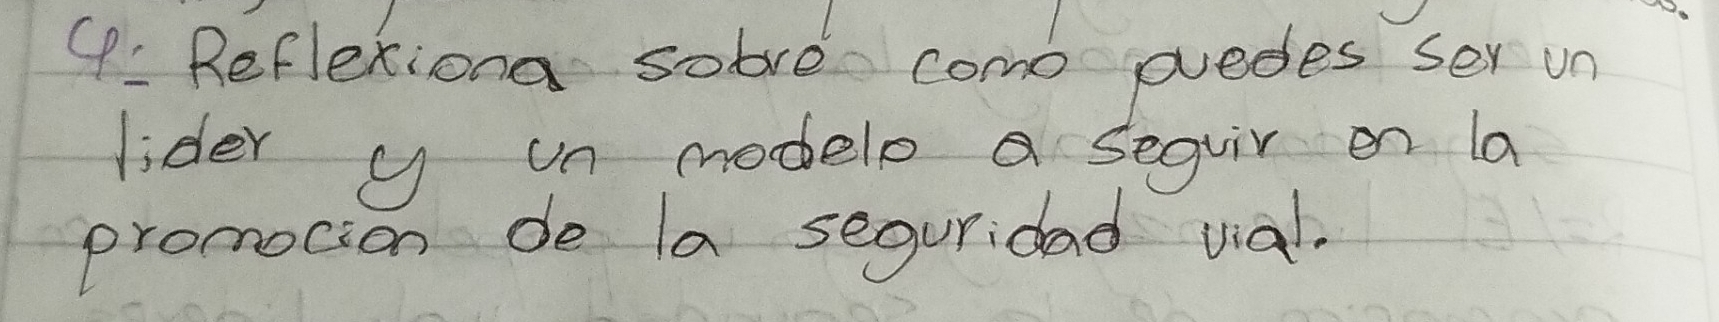 4:- Reflexiona sobre como puedes ser un
lider y un modelo a seguir en la
promocion de la seguridad vial.